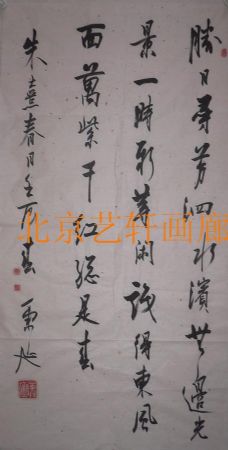 勝日尋芳泗水濱無邊光
景一時新等閑識得東風
面萬紫千紅總是春
朱熹春日
北京艺轩画廊